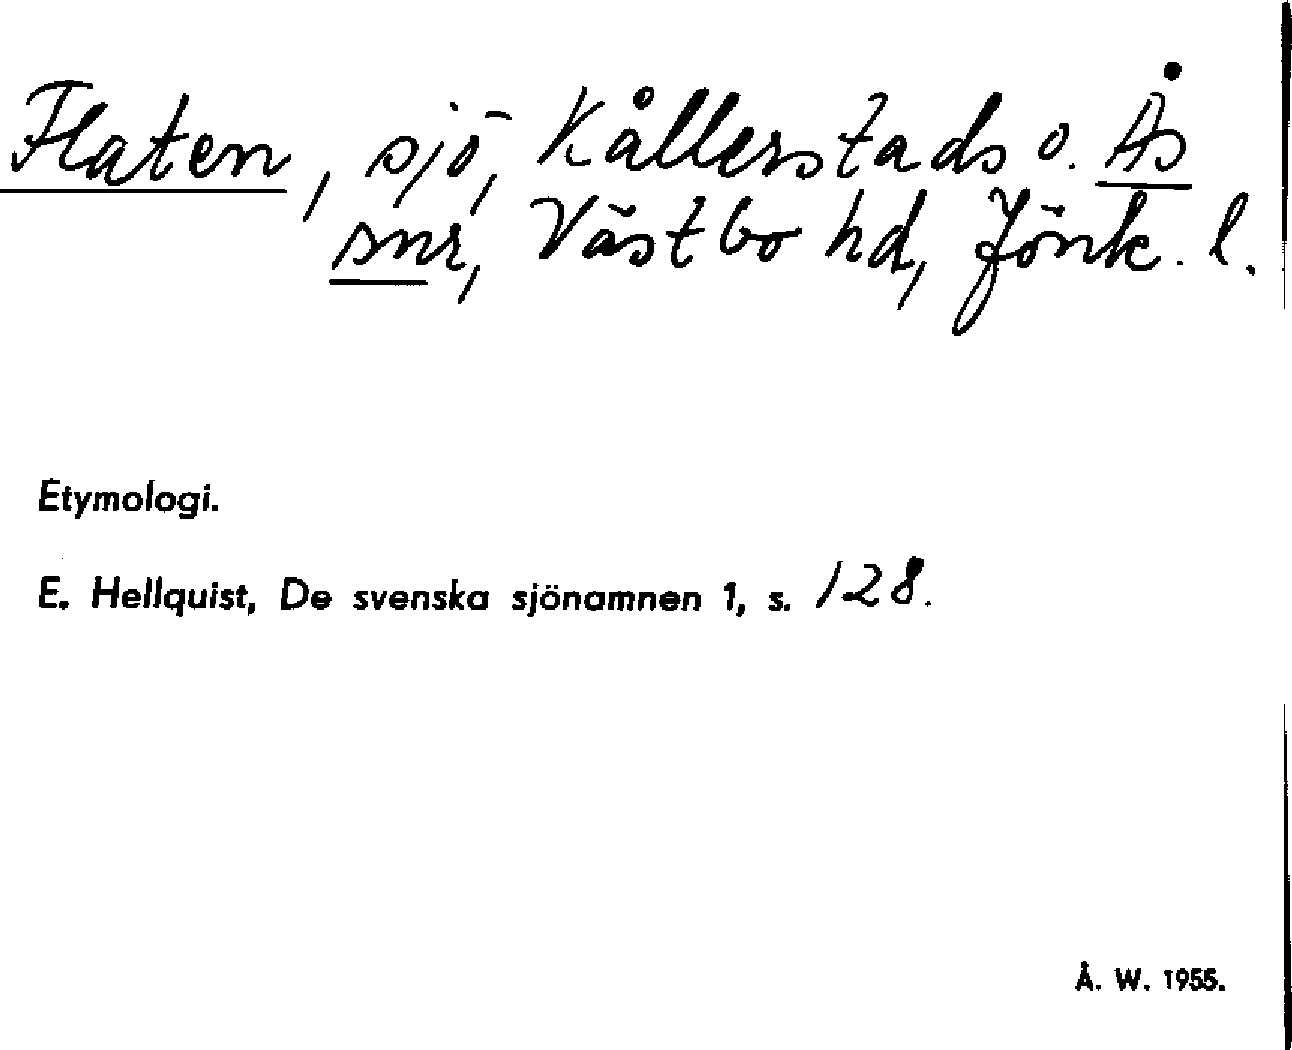 Flaten, sjö, Kållerstads o. Ås
snr, Västbo hd, Jönk. l.
Etymologi.
E. Hellquist, De svenska sjönamnen 1, s. 128.
Å. W. 1955.